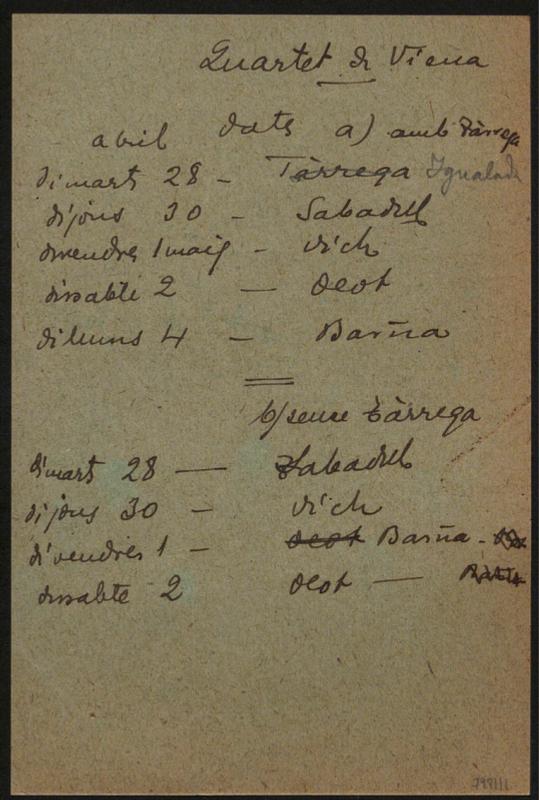 Quartet de Viena
abril dats a) amb Tàrrega
dimart 28 - Tàrrega Igualada
dijous 30 - Sabadell
divendres 1 maig - Vich
dissabte 2 — Olot
dilluns 4 - Barña
b/ sense Tàrrega
dimart 28 — Sabadell
dijous 30 - Vich
divendres 1 - Olot Barña -
dissabte 2 Olot —
799/11